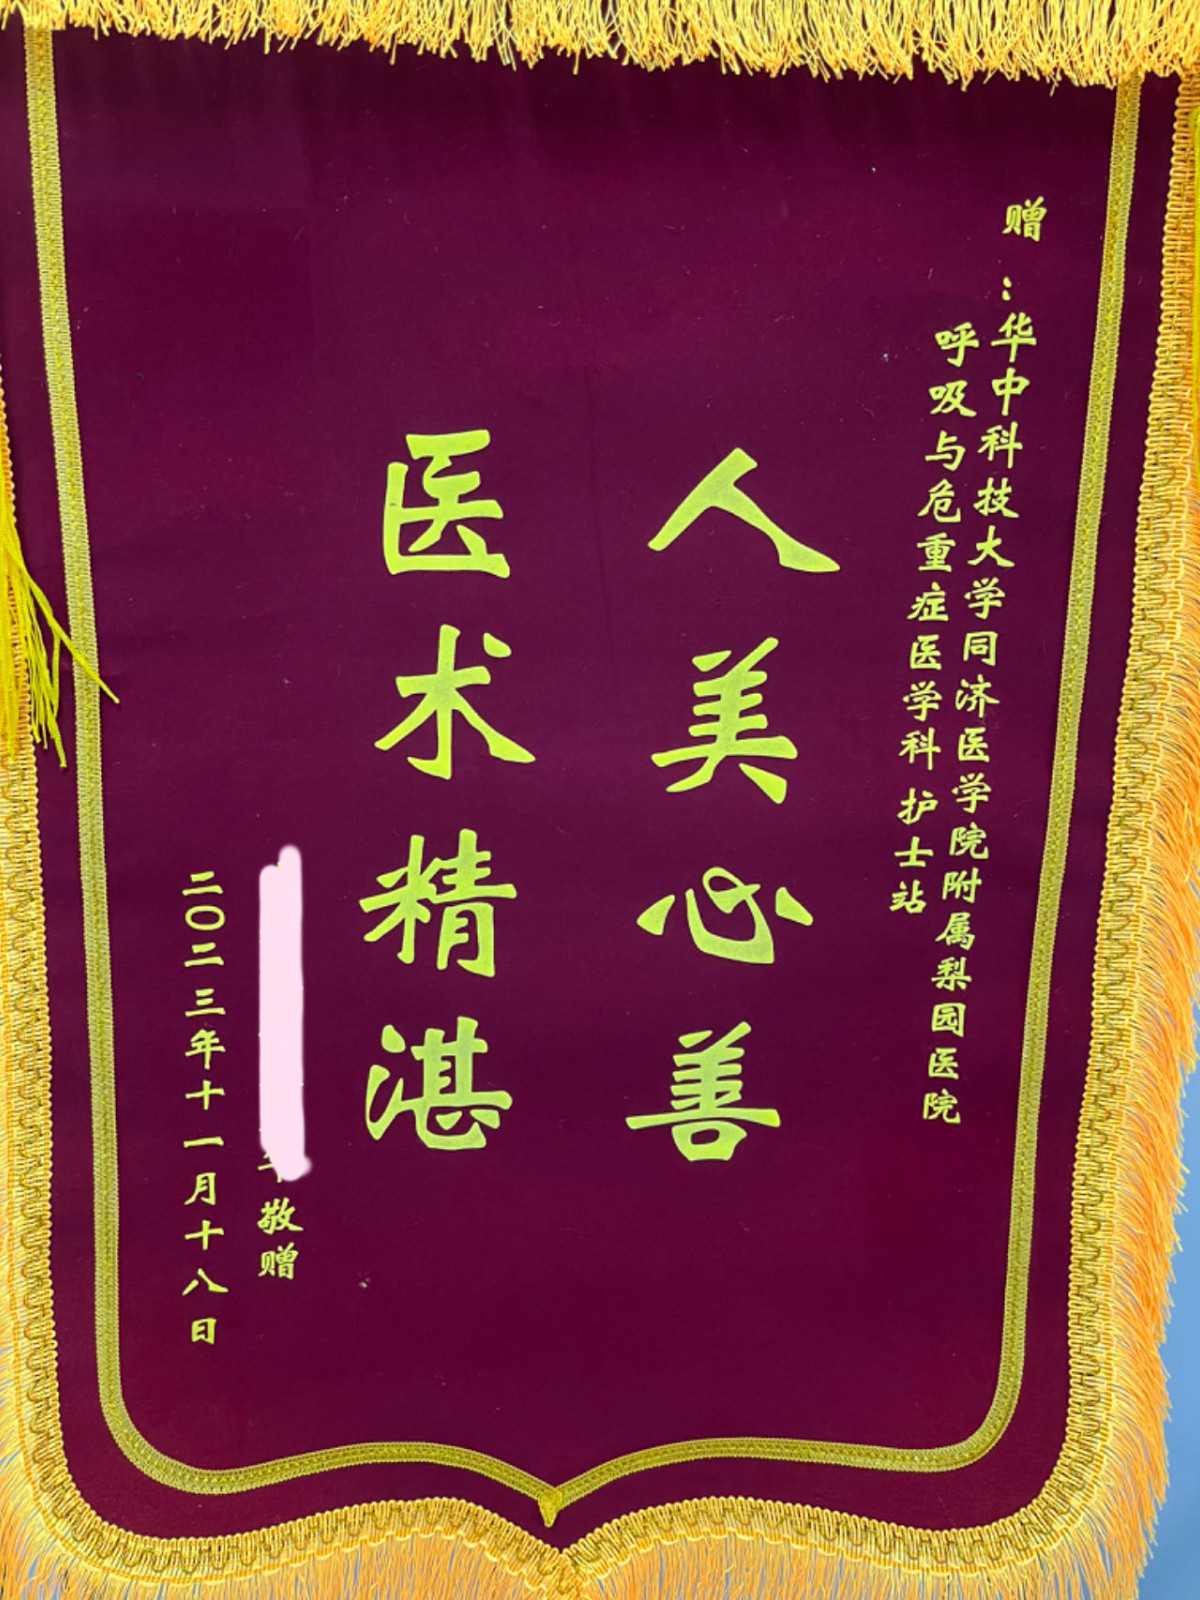 赠：华中科技大学同济医学院附属梨园医院
呼吸与危重症医学科 护士站
人美心善
医术精湛
敬赠
二〇二三年十一月十八日